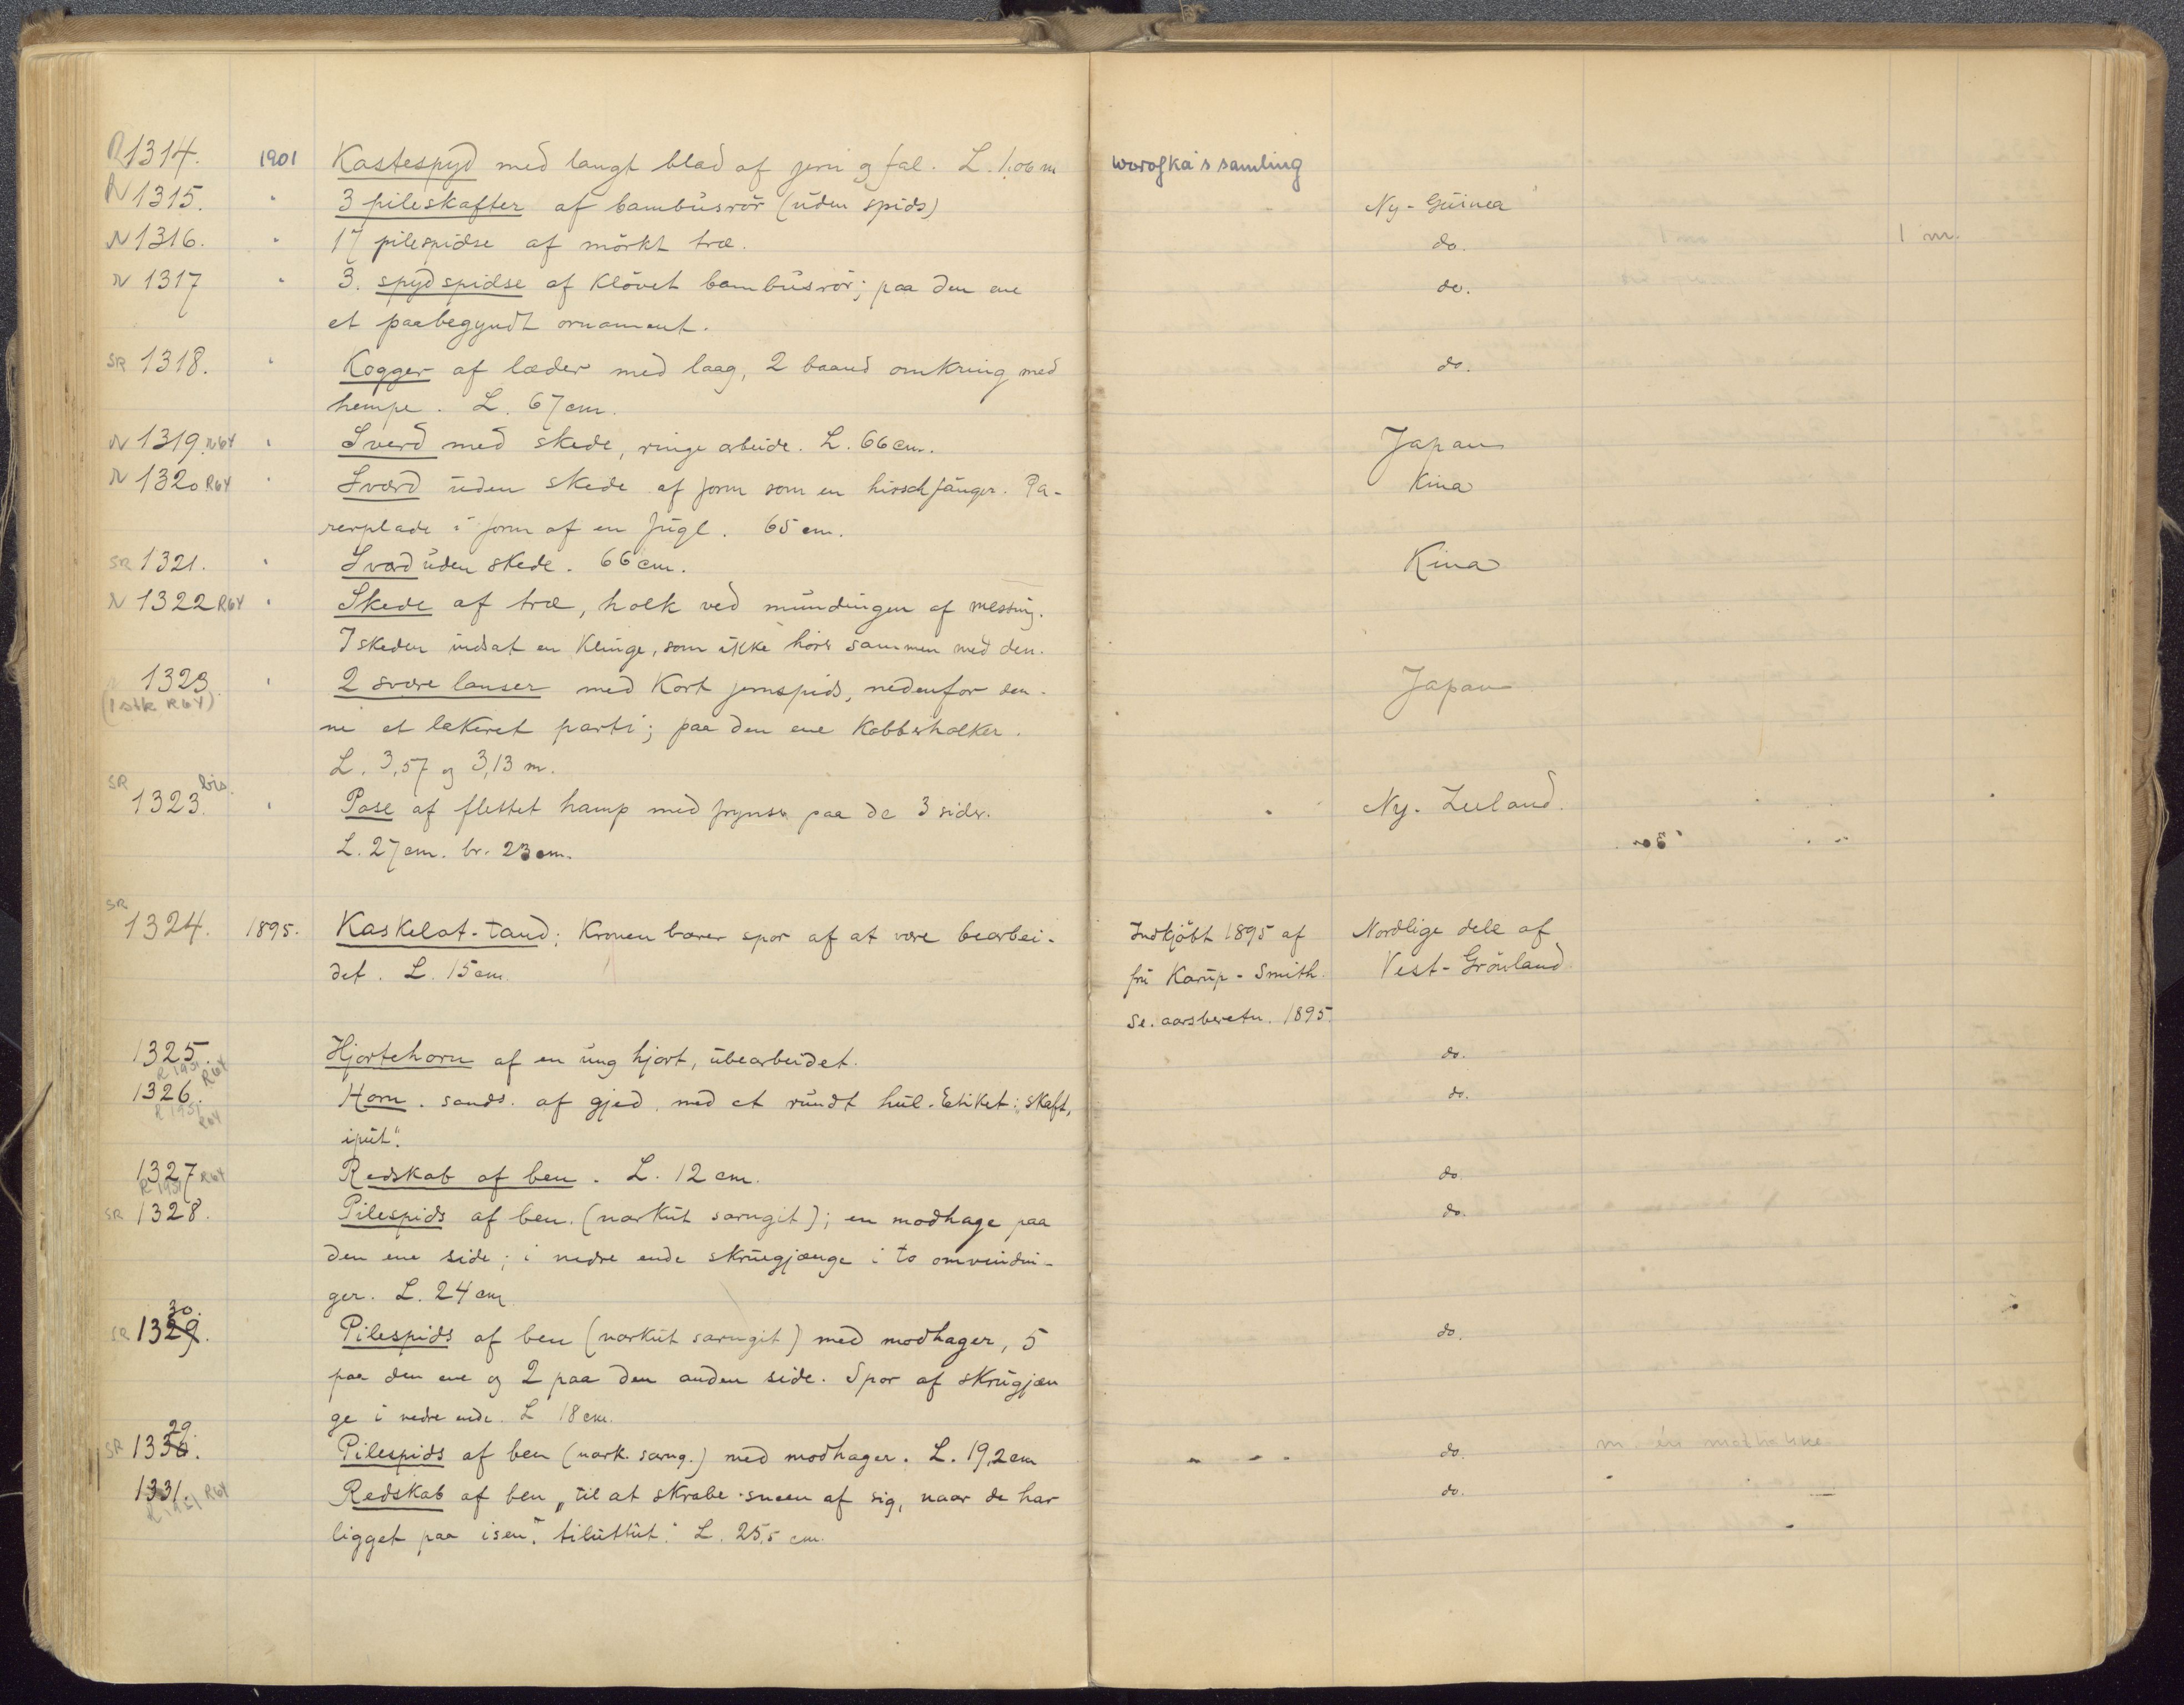 R 1314. 1901 Kastespyd med langt blad af jern og fal. L. 1,06 m Worofka's samling
N 1315. " 3 pileskafter af bambusrör (uden spids) " Ny-Guinea
N 1316. " 17 pilespidse af mörkt træ. do. 1 m.
N 1317 " 3. spydspidse af klövet bambusrör; paa den ene do.
et paabegyndt ornament.
SR 1318. " Kogger af læder med laag, 2 baand omkring med do.
hempe. L. 67 cm.
N 1319. R64 " Sverd med skede, ringe arbeide. L. 66 cm. Japan
N 1320 R64 " Sværd uden skede af form som en hirschfänger. Pa- Kina
rerplade i form af en fugl. 65 cm.
SR 1321. " Sværd uden skede. 66 cm. Kina
N 1322 R64 " Skede af træ, holk ved mundingen af messing.
I skeden indsat en klinge, som ikke hörer sammen med den.
1323. " 2 svære lanser med kort jernspids, nedenfor den- Japan
(1 stk R64) ne et lakeret parti; paa den ene kobberholker.
L. 3,57 og 3,13 m.
SR 1323 bis. " Pose af flettet hamp med frynser paa de 3 sider. " Ny-Zeeland.
L. 27 cm. br. 23 cm.
SR 1324. 1895. Kaskelot-tand; kronen bærer spor af at være bearbei- Indkjöbt 1895 af Nordlige dele af
det. L. 15 cm. fru Karup-Smith. Vest-Grönland
Se. aarsberetn. 1895.
1325. R 1951 R64 Hjortehorn af en ung hjort, ubearbeidet. do.
1326. R 1951 R64 Horn. sands. af gjed. med et rundt hul. Etiket: „skaft,
iput". do.
1327 R64 R 1951 Redskab af ben. L. 12 cm. do.
SR 1328. Pilespids af ben. (narkut sarngit); en modhage paa do.
den ene side; i nedre ende skruegjænge i to omvindin-
ger. L. 24 cm
SR 1329. 30. Pilespids af ben (narkut sarngit) med modhager, 5 do.
paa den ene og 2 paa den anden side. Spor af skrugjæn
ge i nedre ende. L 18 cm.
SR 1330. 29 Pilespids af ben (nark. sarng.) med modhager. L. 19,2 cm " - - do. m. én modhake
1331. R 1951 R64 Redskab af ben „til at skrabe sneen af sig, naar de har do.
ligget paa isen". tiluttut". L. 25,5 cm.